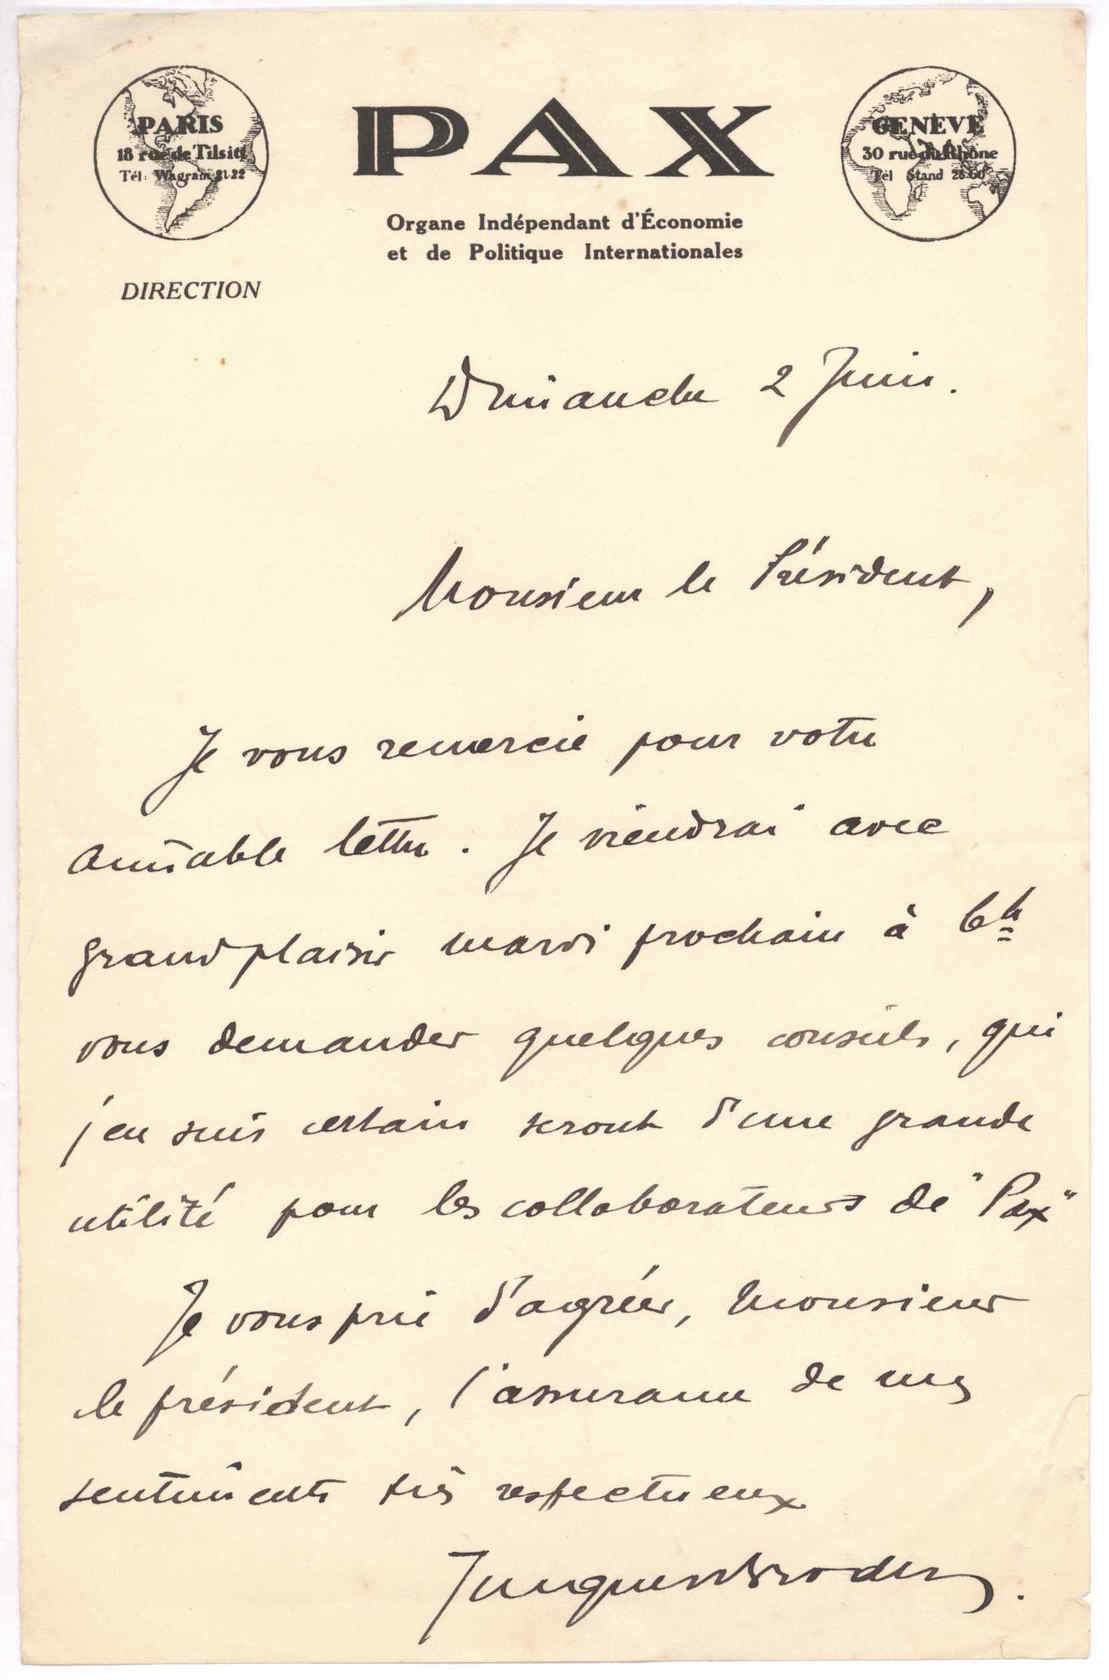 PARIS
18 rue de Tilsitt
Tél: Wagram 21-22
PAX
GENEVE
30 rue du Rhône
Tél Stand 28-60
Organe Indépendant d'Économie
et de Politique Internationales
DIRECTION
Dimanche 2 Juin.
Monsieur le Président,
Je vous remercie pour votre
aimable lettre. Je viendrai avec
grand plaisir mardi prochain à 6h
vous demander quelques conseils, qui
j'en suis certain seront d'une grande
utilité pour les collaborateurs de "Pax"
Je vous prie d'agréer, Monsieur
le président, l'assurance de mes
sentiments très respectueux
Jacques